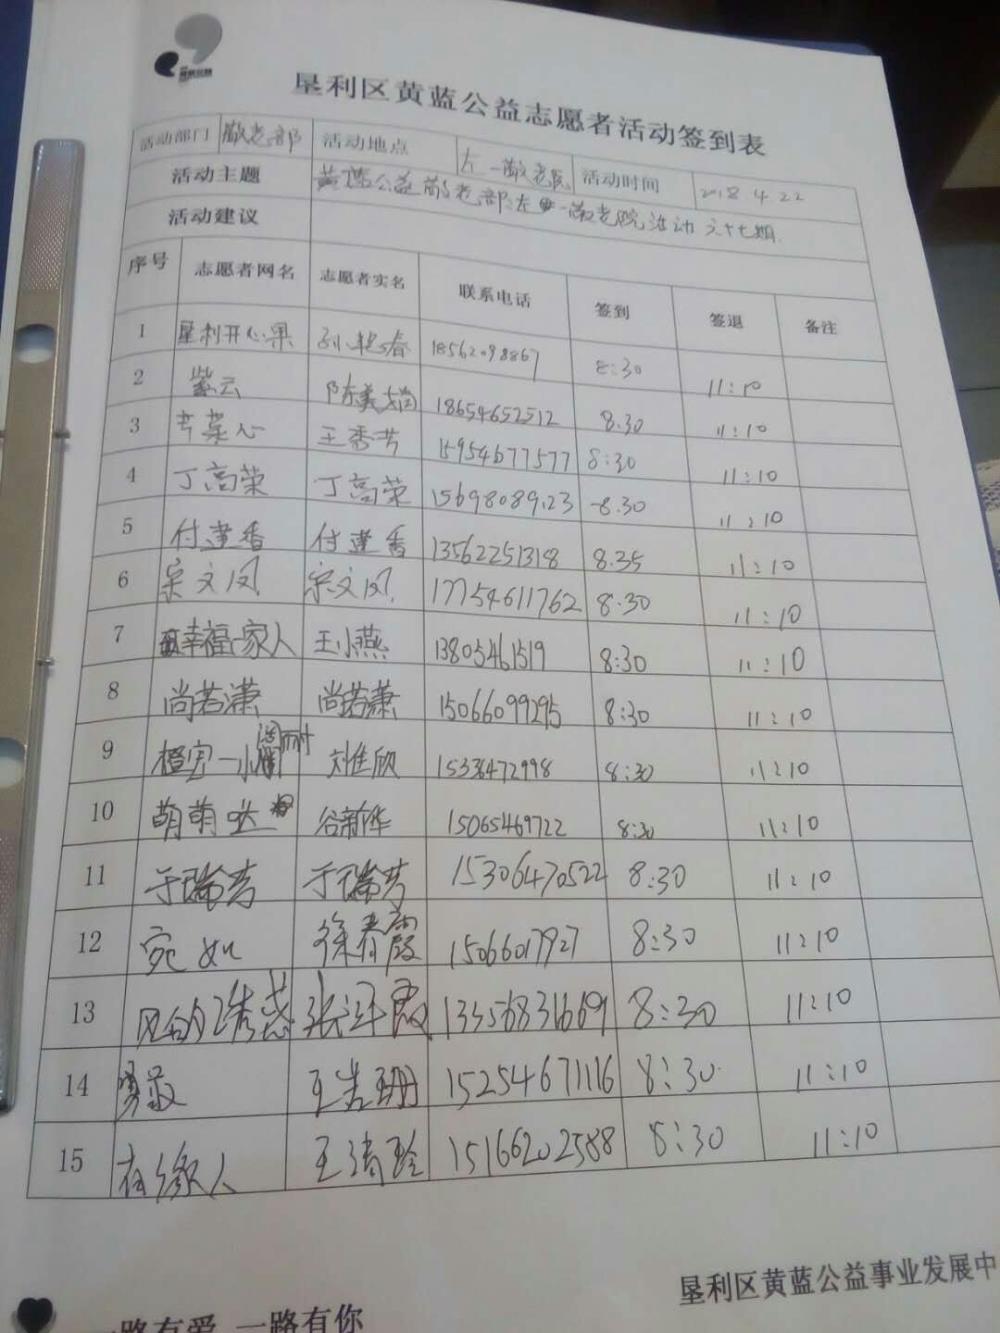 垦利区黄蓝公益志愿者活动签到表
活动部门 敬老部 活动地点 左一敬老院 活动时间 2018.4.22
活动主题 黄蓝公益敬老部左一敬老院活动六十七期.
活动建议
序号 志愿者网名 志愿者实名 联系电话 签到 签退 备注
1 垦利开心果 孙艳春 18562098867 8:30 11:10
2 紫云 陈美 18654652512 8.30 11:10
3 芹菜心 王秀芳 15954677577 8:30 11:10
4 丁高荣 丁高荣 15698089123 8.30 11:10
5 付建香 付建香 13562251318 8.35 11:10
6 宗文凤 宗文凤 17754611762 8.30 11:10
7 幸福一家人 王小燕 13805461519 8:30 11:10
8 尚若潇 尚若潇 15066099295 8:30 11:10
9 橙宝 刘佳欣 8:30 11:10
10 萌萌哒 谷新华 15065469722 8:30 11:10
11 于瑞芳 于瑞芳 15306470522 8:30 11:10
12 宛如 徐春霞 15066017927 8:30 11:10
13 风的诱惑 8:30 11:10
14 15254671116 8:30 11:10
15 有缘人 王清玲 15166202588 8:30 11:10
垦利区黄蓝公益事业发展中
一路有爱 一路有你